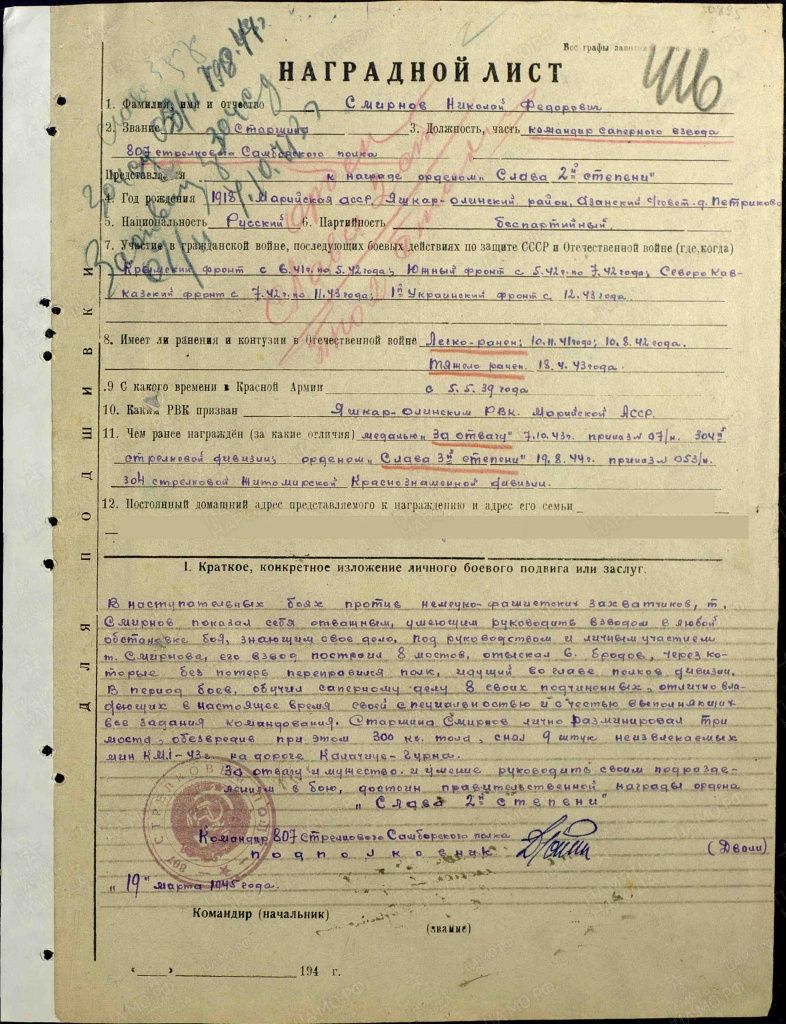 Все графы
416
НАГРАДНОЙ ЛИСТ
1. Фамилия, имя и отчество Смирнов Николай Федорович
2. Звание Старшина 3. Должность, часть командир саперного взвода
807 стрелкового Самборского полка
Представляется к награде орденом „Слава 2й степени"
4. Год рождения 1918, Марийская АССР, Яшкар-олинский район, Азанский с/совет. д. Петриково
5. Национальность Русский 6. Партийность беспартийный.
7. Участие в гражданской войне, последующих боевых действиях по защите СССР и Отечественной войне (где, когда)
Крымский фронт с 6.41г. по 5.42 года; Южный фронт с 5.42г по 7.42 года; Северо Кав-
казский фронт с 7.42г. по 11.43 года; 1й Украинский фронт с 12.43 года.
8. Имеет ли ранения и контузии в Отечественной войне Легко-ранен; 10.11.41 года; 10.8.42 года.
Тяжело ранен. 18.4.43 года.
9 С какого времени в Красной Армии с 5.5.39 года
10. Каким РВК призван Яшкар-Олинским РВК. Марийской АССР.
11. Чем ранее награждён (за какие отличия) медалью „За отвагу" 7.10.43г. приказ № 07/н. 304й
стрелковой дивизии; орденом „Слава 3й степени" 19.8.44г. приказ № 053/н.
304 стрелковой Житомирской Краснознаменной дивизии.
12. Постоянный домашний адрес представляемого к награждению и адрес его семьи
ДЛЯ ПОДШИВКИ
I. Краткое, конкретное изложение личного боевого подвига или заслуг.
В наступательных боях против немецко-фашистских захватчиков, т.
Смирнов показал себя отважным, умеющим руководить взводом в любой
обстановке боя, знающим свое дело, под руководством и личным участием
т. Смирнова, его взвод построил 8 мостов, отыскал 6. бродов, через ко-
торые без потерь переправился полк, идущий во главе полков дивизии.
В период боев, обучил саперному делу 8 своих подчиненных, отлично вла-
деющих в настоящее время своей специальностью и с честью выполняющих
все задания командования. Старшина Смирнов лично разминировал три
моста, обезвредив при этом 300 кг. тола, снял 9 штук неизвлекаемых
мин КМi-43г. на дороге Калачице-Гурна.
За отвагу и мужество. и умение руководить своим подразде-
лением в бою, достоин правительственной награды ордена
„Слава 2й степени"
СТРЕЛКОВЫЙ ПОЛК 807
Командир 807 Стрелкового Самборского полка
подполковник (Двали)
„19" марта 1945 года.
Командир (начальник)
(звание)
„ " 194 г.